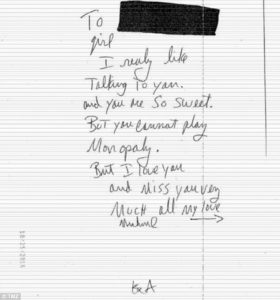 To
girl
I really like
Talking To you.
and you are So sweet.
BuT you cannot play
Monopoly.
But I love you
and Miss you very
Much all my love